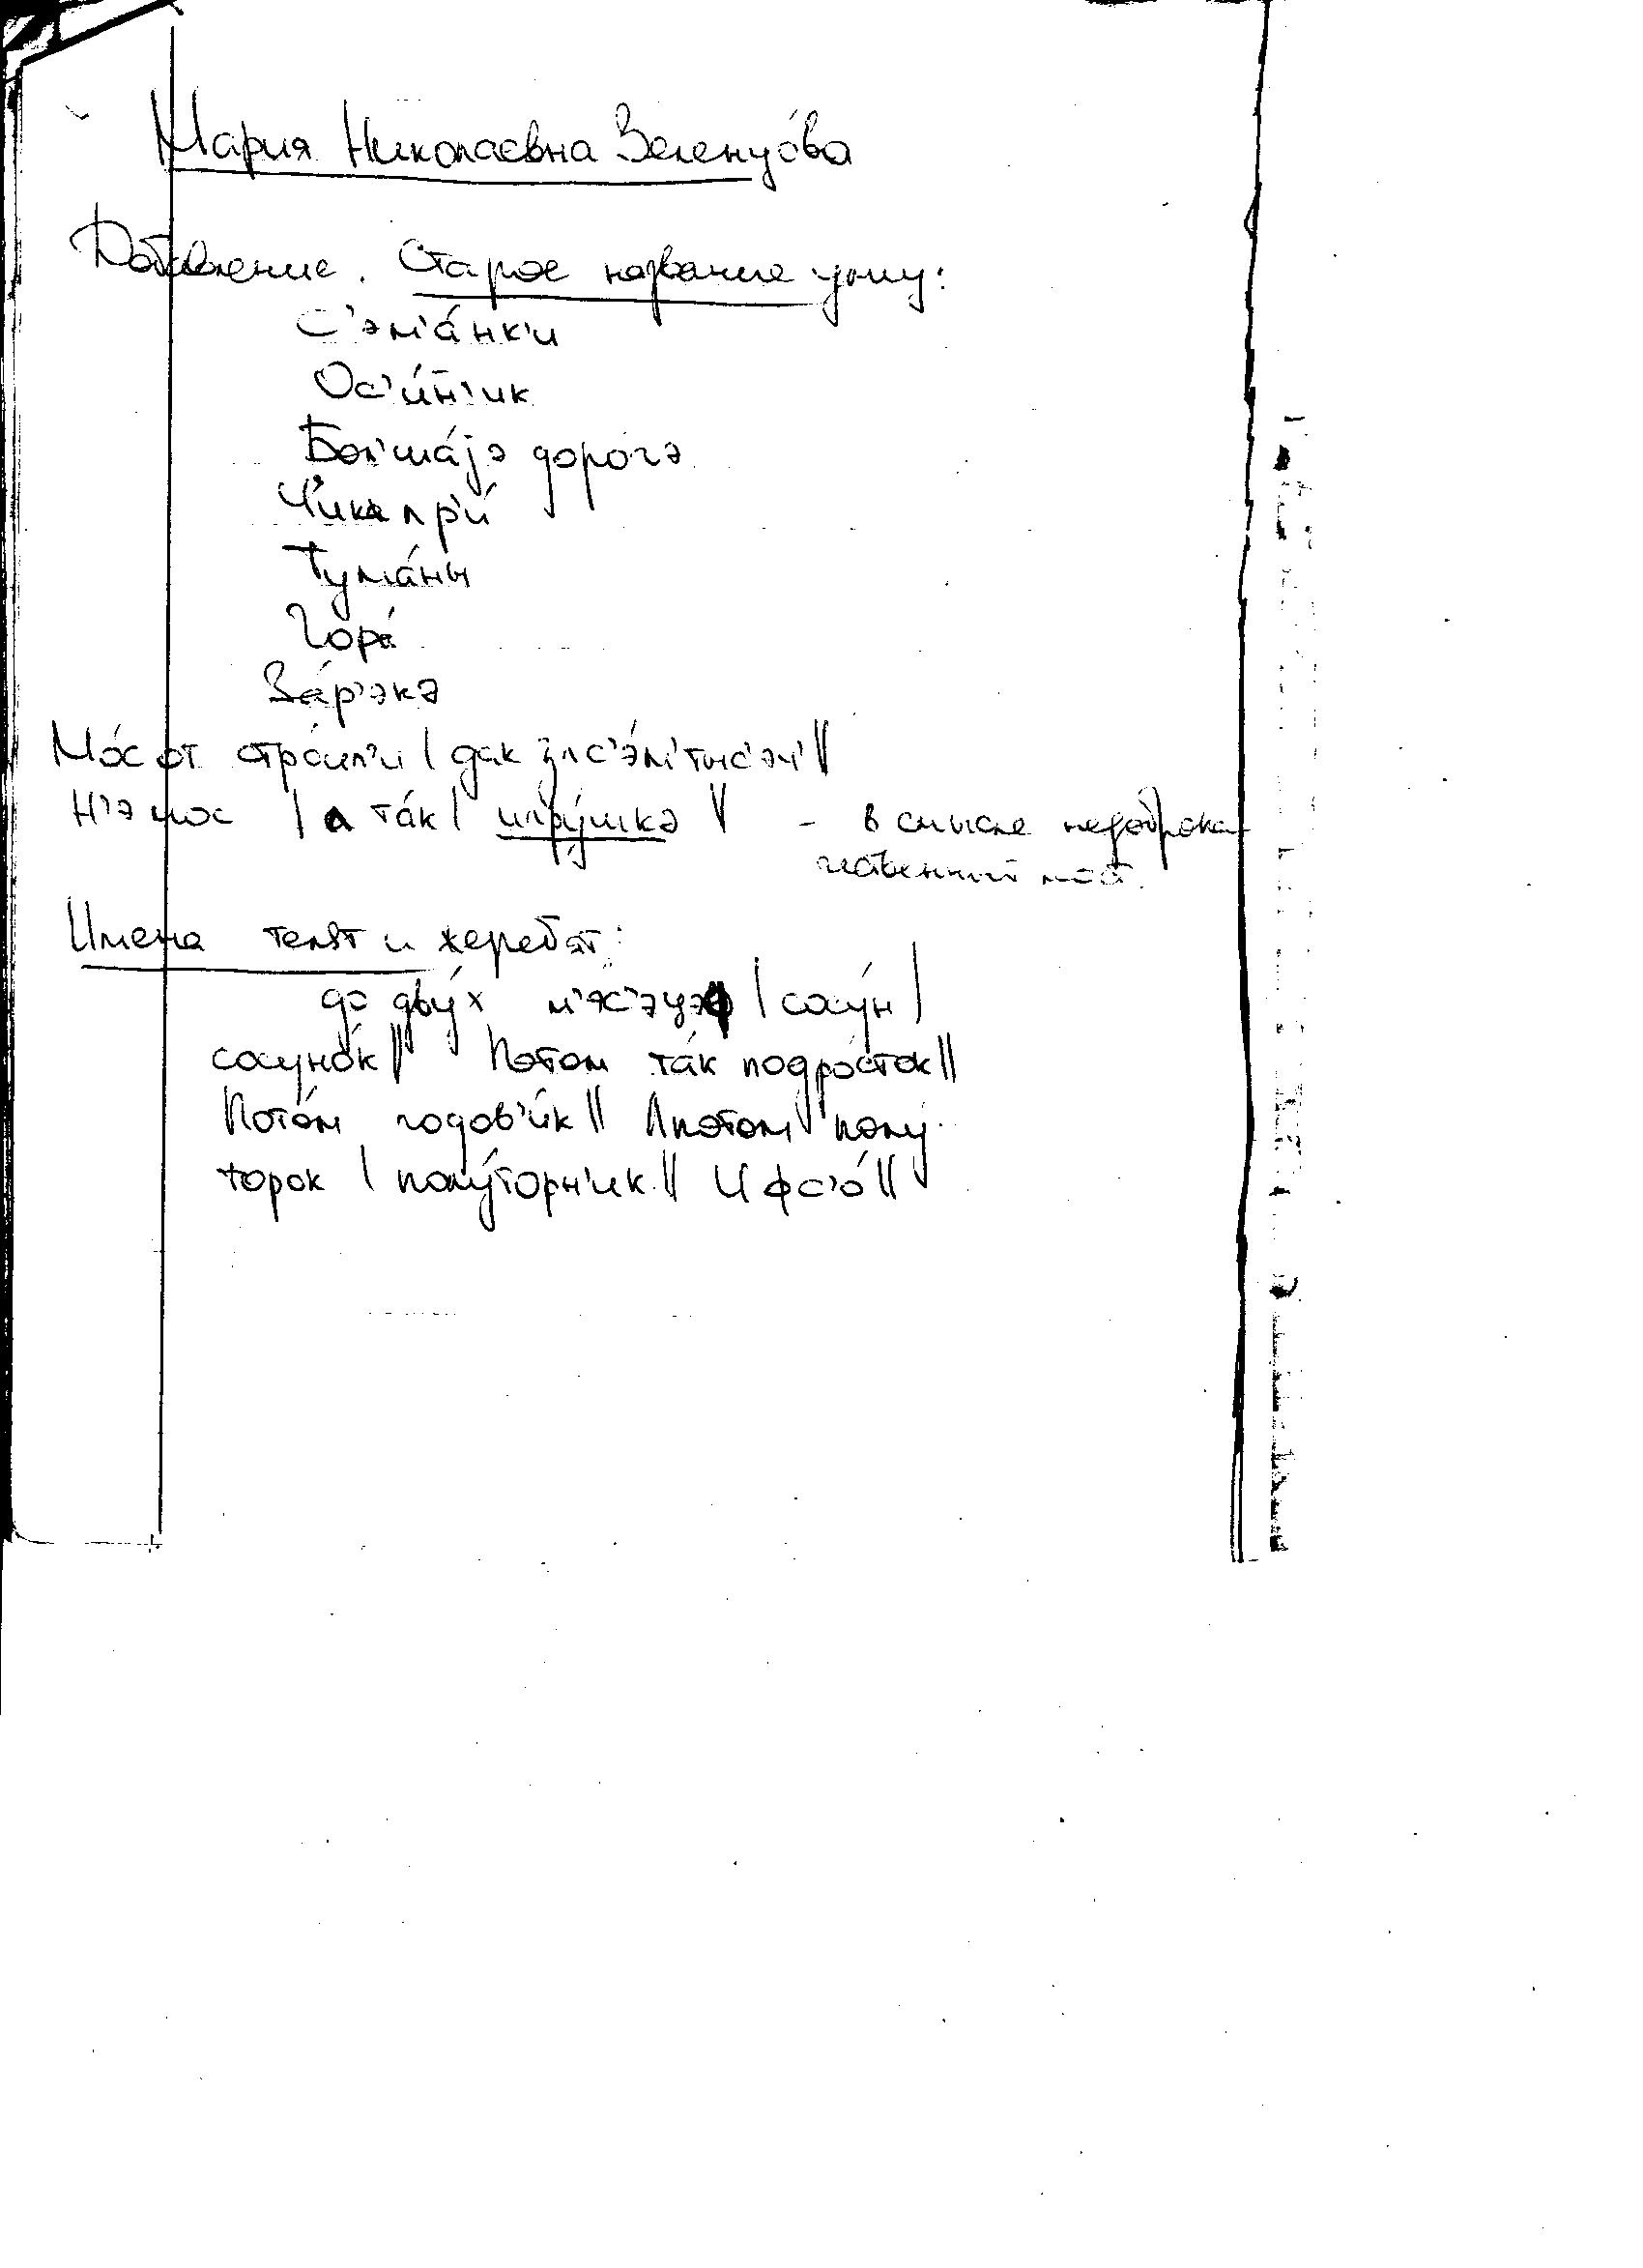 Мария Николаевна Зеленцо́ва
Добавление. Старое название улиц:
С'эма́нк'и
Ос'и́н'ик
Бол'ша́jэ доро́гэ
Ту́ма́ны
Гора́
За́р'экэ
Мо́с от стро́ил'и | дак
Н'э мос | а та́к | игру́шкэ || - в смысле недоброка-
чественный мост.
Имена телят и жеребят:
до дву́х м'э́с'эцэф | сосу́н |
сосуно́к || Потом та́к подро́сток ||
Пото́м годов'и́к || А потом полу-
торок | полу́торн'ик || И фс'о́ ||